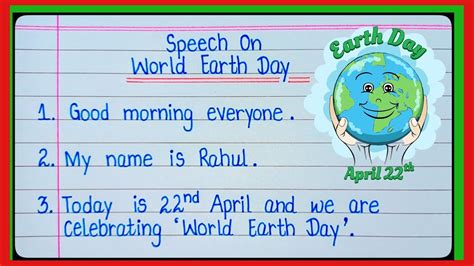 Speech On
World Earth Day
Earth Day
April 22th
1. Good morning everyone.
2. My name is Rahul.
3. Today is 22nd April and we are
celebrating 'World Earth Day'.